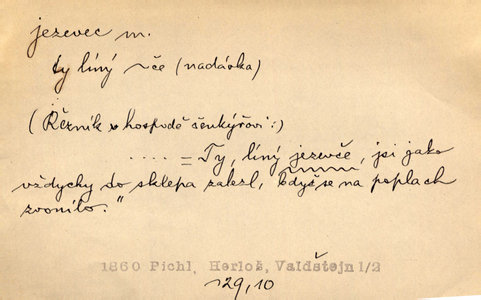 jezevec m.
ty líný ~če (nadávka)
(Řezník v hospodě šenkýřovi:)
.... = Ty, líný jezevče, jsi jako
vždycky do sklepa zalezl, když se na poplach
zvonilo."
1860 Pichl, Herloš, Valdštejn 1/2
129,10